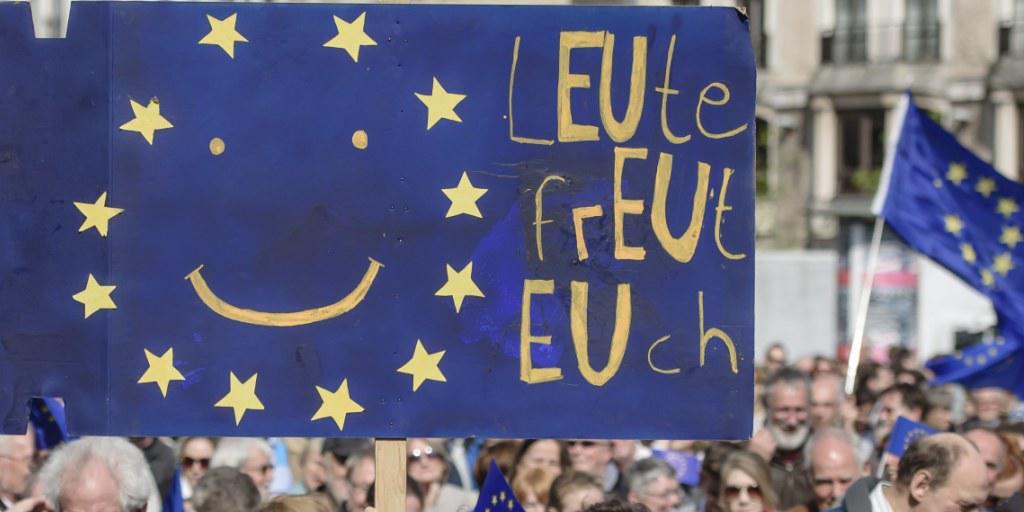 LEUte
frEUt
EUch